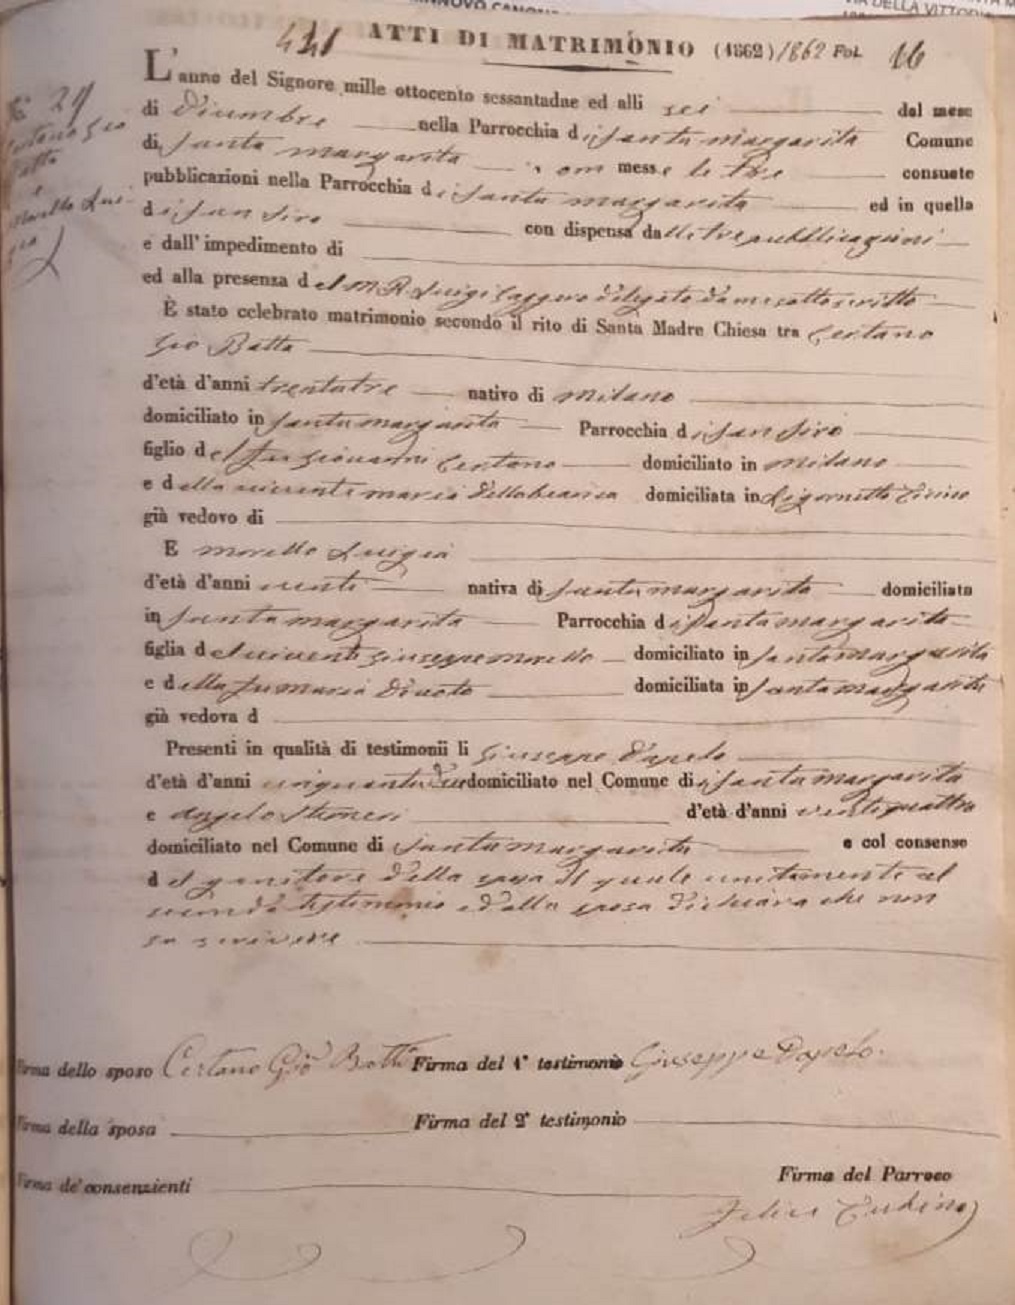 ATTI DI MATRIMONIO (1862) /1862 Fol. 16
L'anno del Signore mille ottocento sessantadue ed alli sei del mese
N° 29
di Dicembre nella Parrocchia di Santa Margarita Comune
Certano Gio
di Santa Margarita om messe le tre consuete
Batta
e
pubblicazioni nella Parrocchia di Santa Margarita ed in quella
Morello Lui-
di San Siro con dispensa dalle tre pubblicazioni
gia
e dall'impedimento di
ed alla presenza del M R Luigi Caggero delegato da me sottoscritto
È stato celebrato matrimonio secondo il rito di Santa Madre Chiesa tra Certano
Gio Batta
d'età d'anni trentatre nativo di Milano
domiciliato in Santa Margarita Parrocchia di San Siro
figlio del fu Giovanni Certano domiciliato in Milano
e della vivente Maria Dellabianca domiciliata in Ligornetto Ticino
già vedovo di
E Morello Luigia
d'età d'anni venti nativa di Santa Margarita domiciliata
in Santa Margarita Parrocchia di Santa Margarita
figlia del vivente Giuseppe Morello domiciliato in Santa Margarita
e della fu Maria Divoto domiciliata in Santa Margarita
già vedova d
Presenti in qualità di testimonii li Giuseppe Dapelo
d'età d'anni cinquanta due domiciliato nel Comune di Santa Margarita
e Angelo d'età d'anni ventiquattro
domiciliato nel Comune di Santa Margarita e col consenso
del genitore della sposa il quale unitamente al
secondo testimonio e dalla sposa dichiara che non
sa scrivere
Firma dello sposo Certano Gio Batta Firma del 1° testimonio Giuseppe Dapelo.
Firma della sposa Firma del 2° testimonio
Firma de' consenzienti Firma del Parroco
Felice